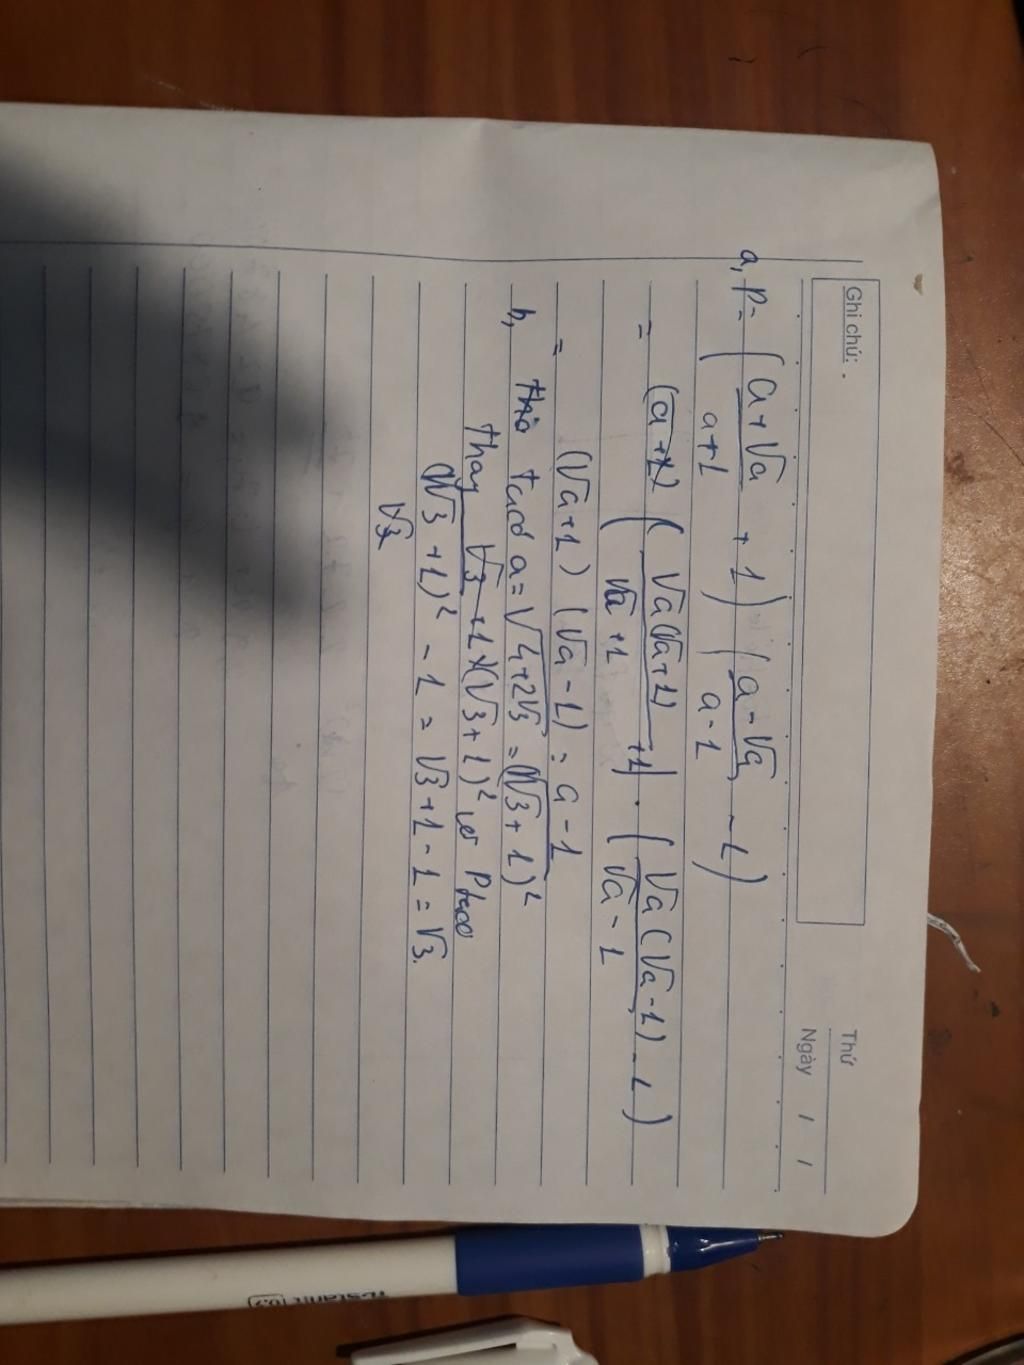 Ghi chú:
Thứ
Ngày / /
a, P = (a+√a / a+1 + 1) (a-√a / a-1 - 1)
= (√a(√a+1) / √a+1 +1) . (√a(√a-1) / √a-1 - 1)
= (√a+1) (√a-1) = a-1
b, ta có a = √4+2√3 = √(√3+1)²
Thay √3+1 (√3+1)² P
√(√3+1)² - 1 = √3+1-1 = √3.
√3